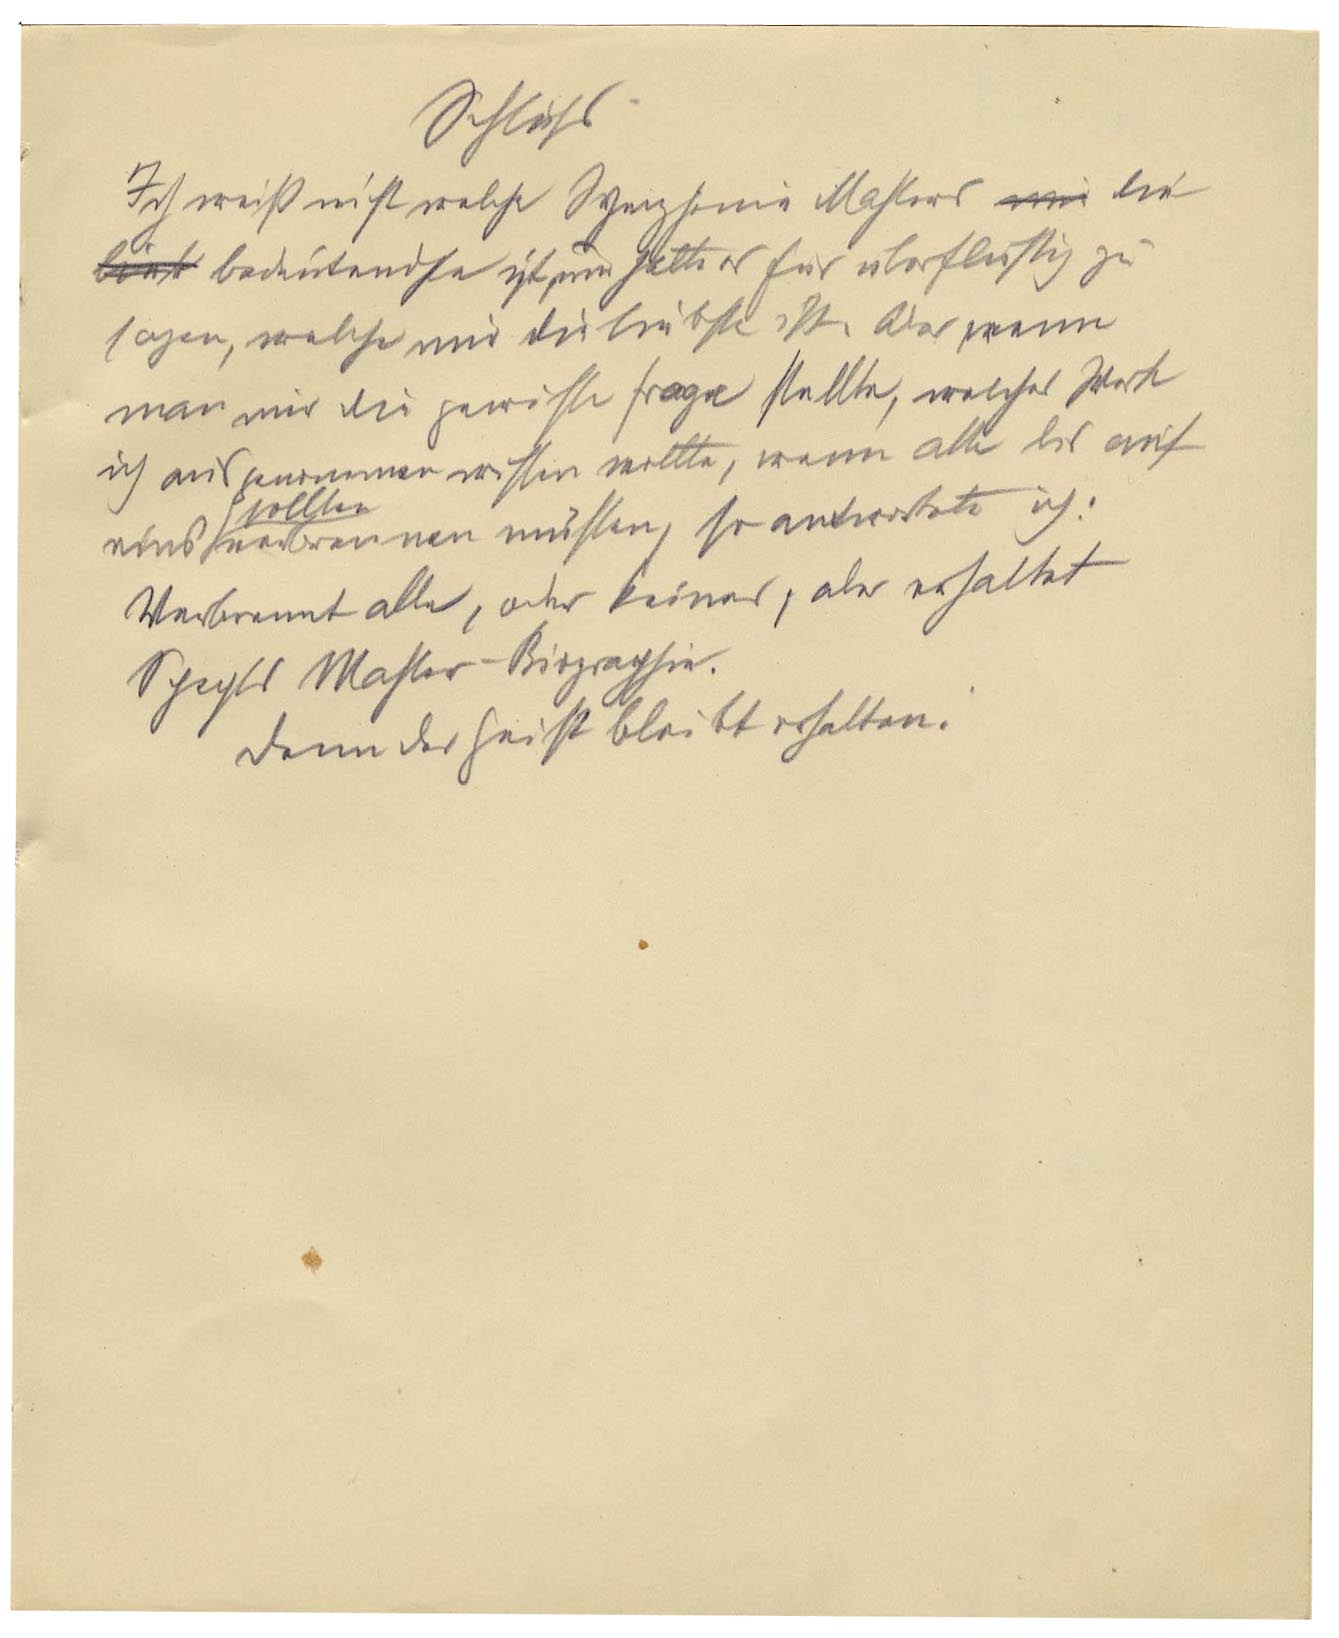 Schluss
Ich weiß nicht welche Symphonie Mahlers mir die
bedeutendste ist, und hielte es für überflüssig zu
sagen, welche mir die liebste ist. Aber wenn
man mir die gewisse Frage stellte, welches Werk
ich ausgenommen wissen wollte, wenn alle bis auf
sollten
eins verbrennen müssten, so antwortete ich:
Verbrennt alle, oder keines, aber erhaltet
Spechts Mahler-Biographie.
Denn der Geist bleibt erhalten.